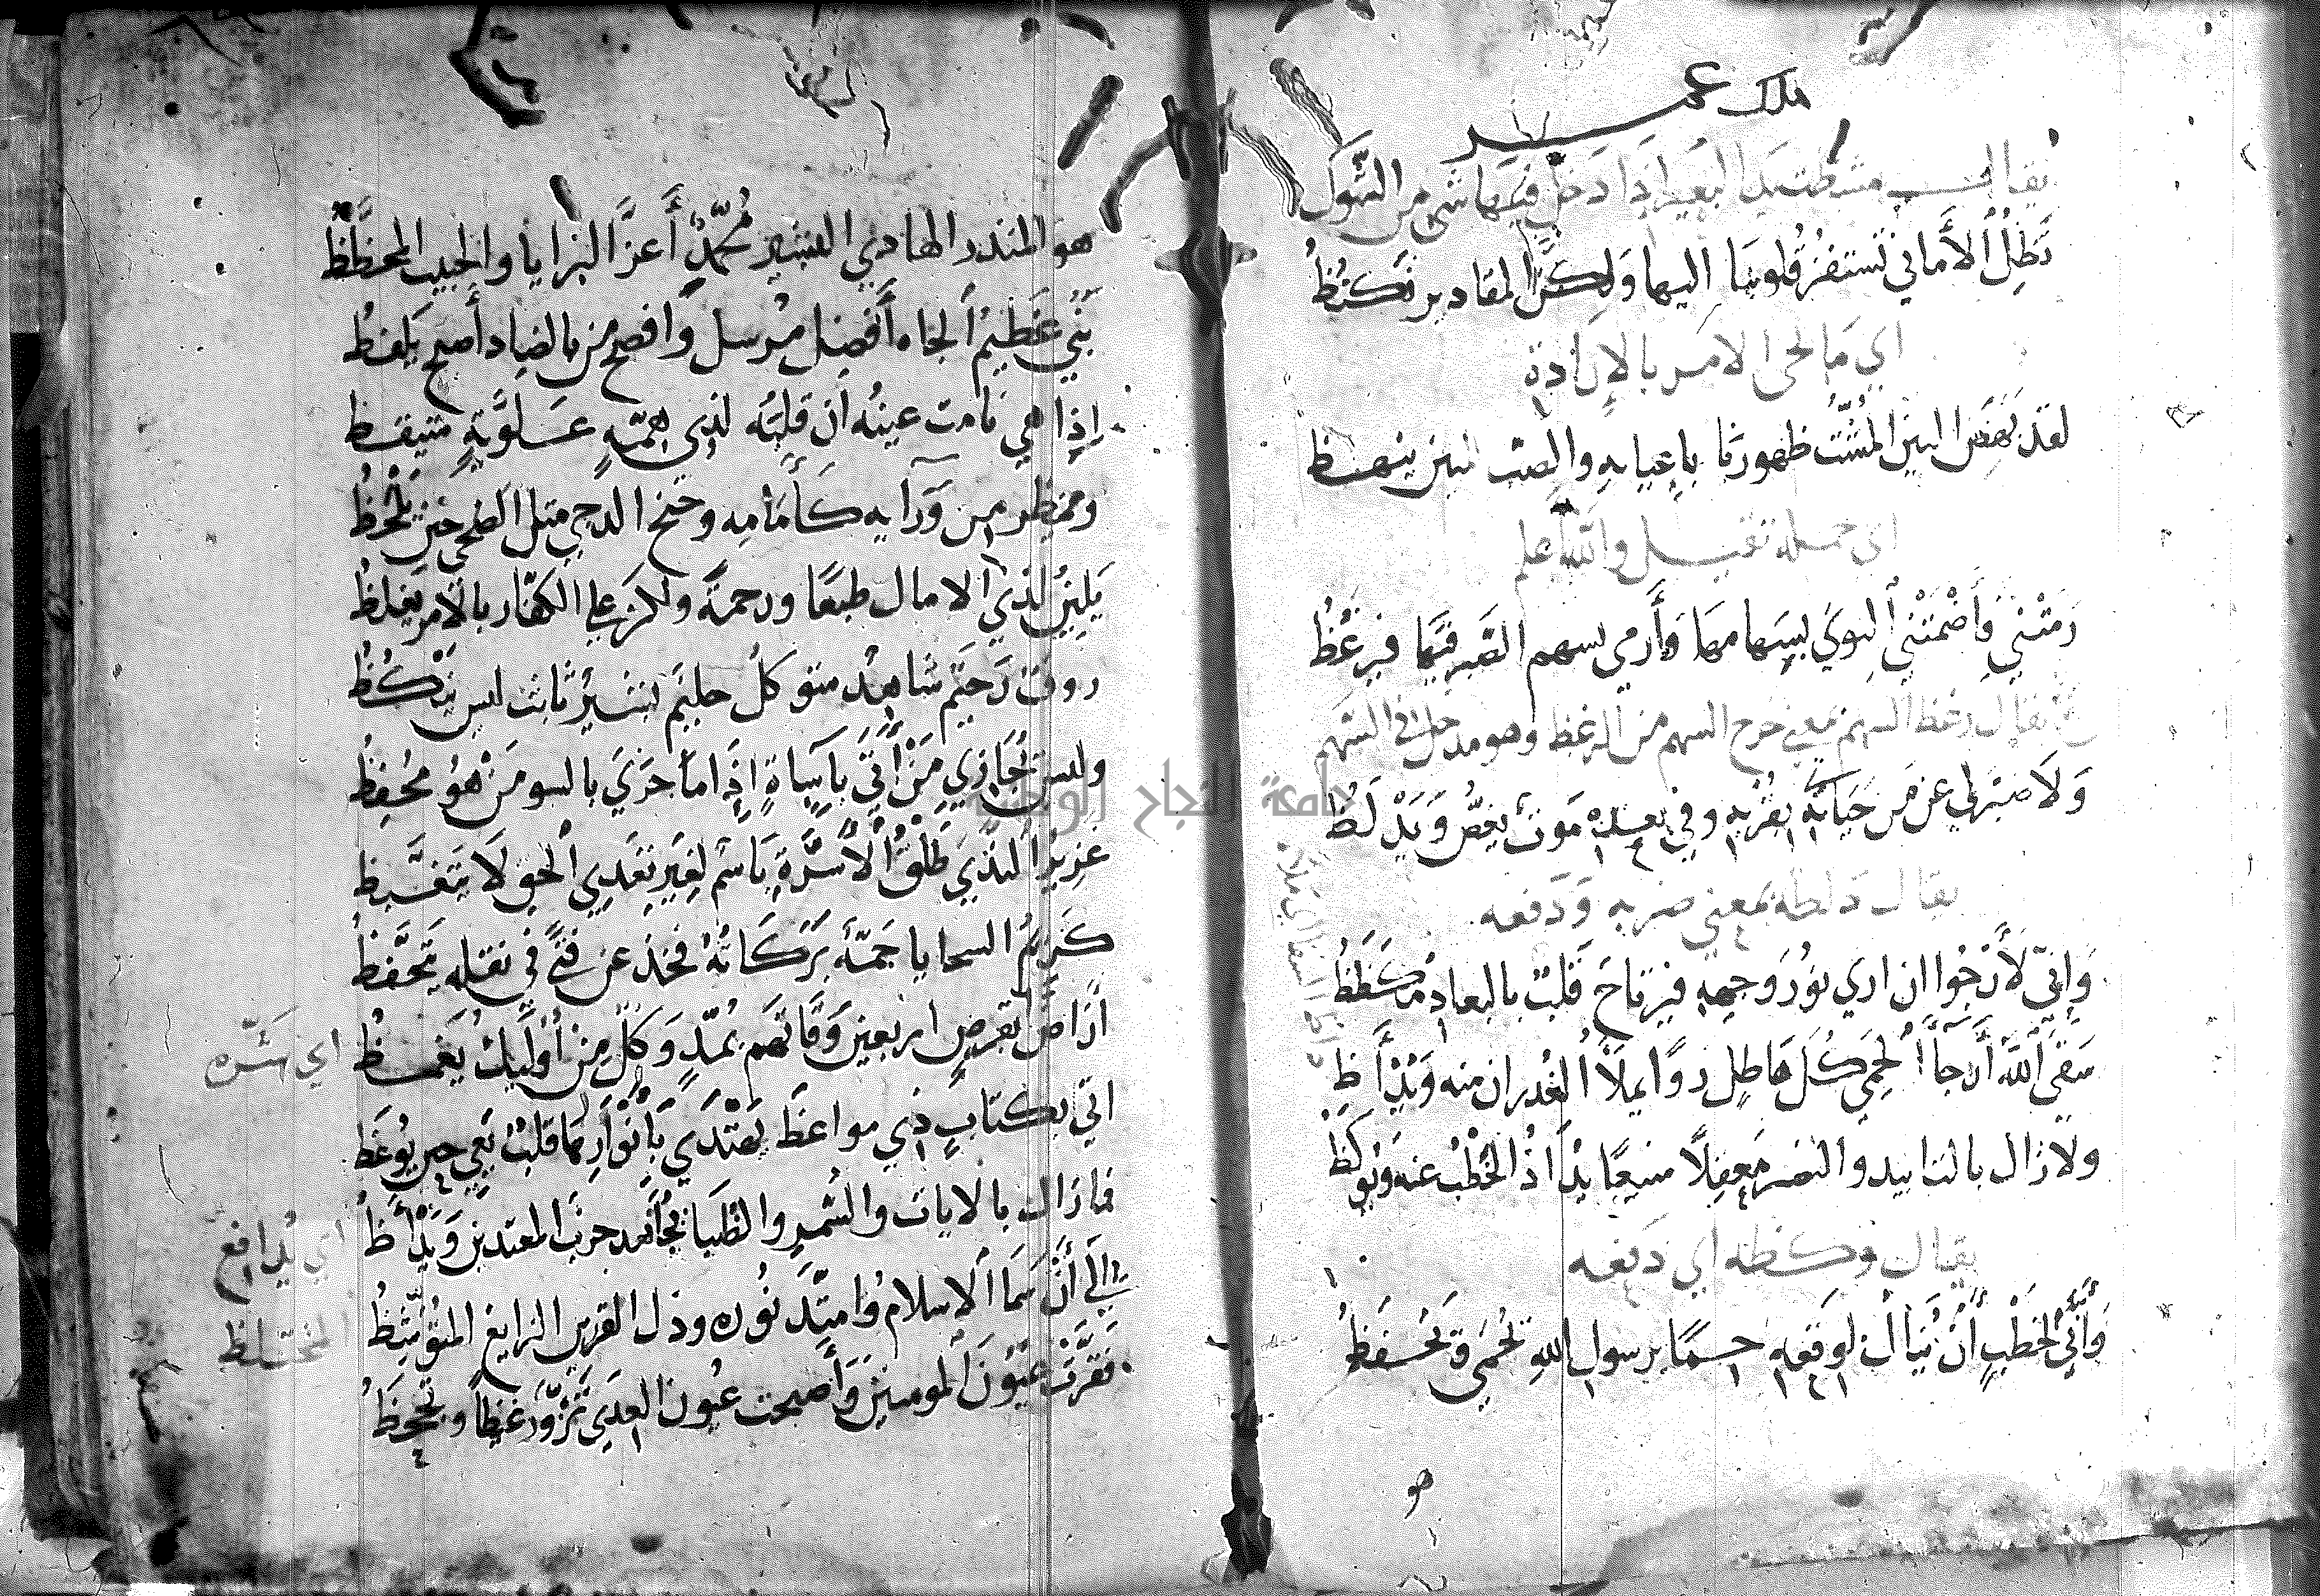 ملك عمير
يقال مشظت يد البعير اذا دخل فيها شي من الشوك
تَظِلُّ الأَماني تستفزُ قلوبنا اليها وَلكنَّ المقادير تَنكظُ
اي مالحى الامر بالإرادة
لقد بَهَضَ البين المُشتُّ ظهورنا باعبايه والصب للبين ينهظ
اي حمله ثقيل والله اعلم
رَمَتْني وَأَصْمَتْني النوي بسهامها وَأَرمي بسهم الصبر فيها فيرعظُ
يقال رعظ السهم بمعني خرج السهم من الرعظ وهو مدخل في السهم
وَلَا صبر لي عن مَن حَيَاتي بقُربه وفي بعده مَوت يغصُّ وَيَدْلَظُ
يقال دلظه بمعني ضربه وَدَفعه
وَإِنّي لأَرْجُوا ان اري نوُرَ وجهه فيرتاح قَلبٌ بالبعاد مكظظُ
سَقَى اللهُ أَرجآءَ الحمى كُلّ هاطل روًا يملأ الغُدران منه وَيَدْأَظ
ولا زال بالتاييد والنصر معقلًا منيعًا يُذَادُ الخَطْب عنه وَيُوكَظُ
يقال وكظه اي دفعه
وَأَنَّي لخَطْبٍ أَنْ يُنال لوقعه حِمًا برسول اللهِ يُحمي وَيُحفظُ
هو
هو المنذر الهادي البشير مُحمّدٌ أَعزّ البرايا والحبيب المحظظُ
نَبيّ عَظيمُ الجاه أَفضل مُرسل وَافصح من بالضاد أصبح يلفظُ
إِذا هي نامت عينُه ان قلبَه لذي همّةٍ عُلويّةٍ متيقظ
وينظر من وَرآيه كَأَمَامِه وجنح الدجى مثل الضحى حين يَلْحَظُ
يَلينُ لذي الامال طبعًا ورحمةً ولكن علي الكفار بالامر يغلظُ
روُف رَحيم شاهد متوكلُ حليم بشير ثابت ليس يَنْكُظُ
وليس يُجَازي مَنْ أَتَى بإِساةٍ إِذا ما جَزي بالسو مَن هو مُحفظُ
عَزيزُ الندَي طَلْقُ الأَسرّةِ باسم لغير تعدي الحق لا يتغيظ
كَريمُ السجايا جَمّة بَرَكاتُه فخذ عن فتًى في نقله يتحفظُ
أَرَاضَ بقرصٍ اربعين وَفَاتهم بمدٍّ وَكُلٌّ من أوليك يغمظُ
اي شره
اتى بكتابٍ ذي مواعظ يهتدي بأَنْوَارها قلبٌ يَعي حين يُوعَظُ
فما زال بالايات والسُمرِ والظبا يُجاهد حرب المعتدين وَيَدْأَظُ
اي يُدافع
إِلَى أَنْ سَمَا الاسلامُ وَامتدّ نوُره وذل القرين الزايغ المتوّشظُ
المختلط
فَقَرّت عُيُونُ المومنين وَأَصبحت عيون العِدَي تزوَرُّ غيظًا وتجحظُ
جامعة النجاح الوطنية